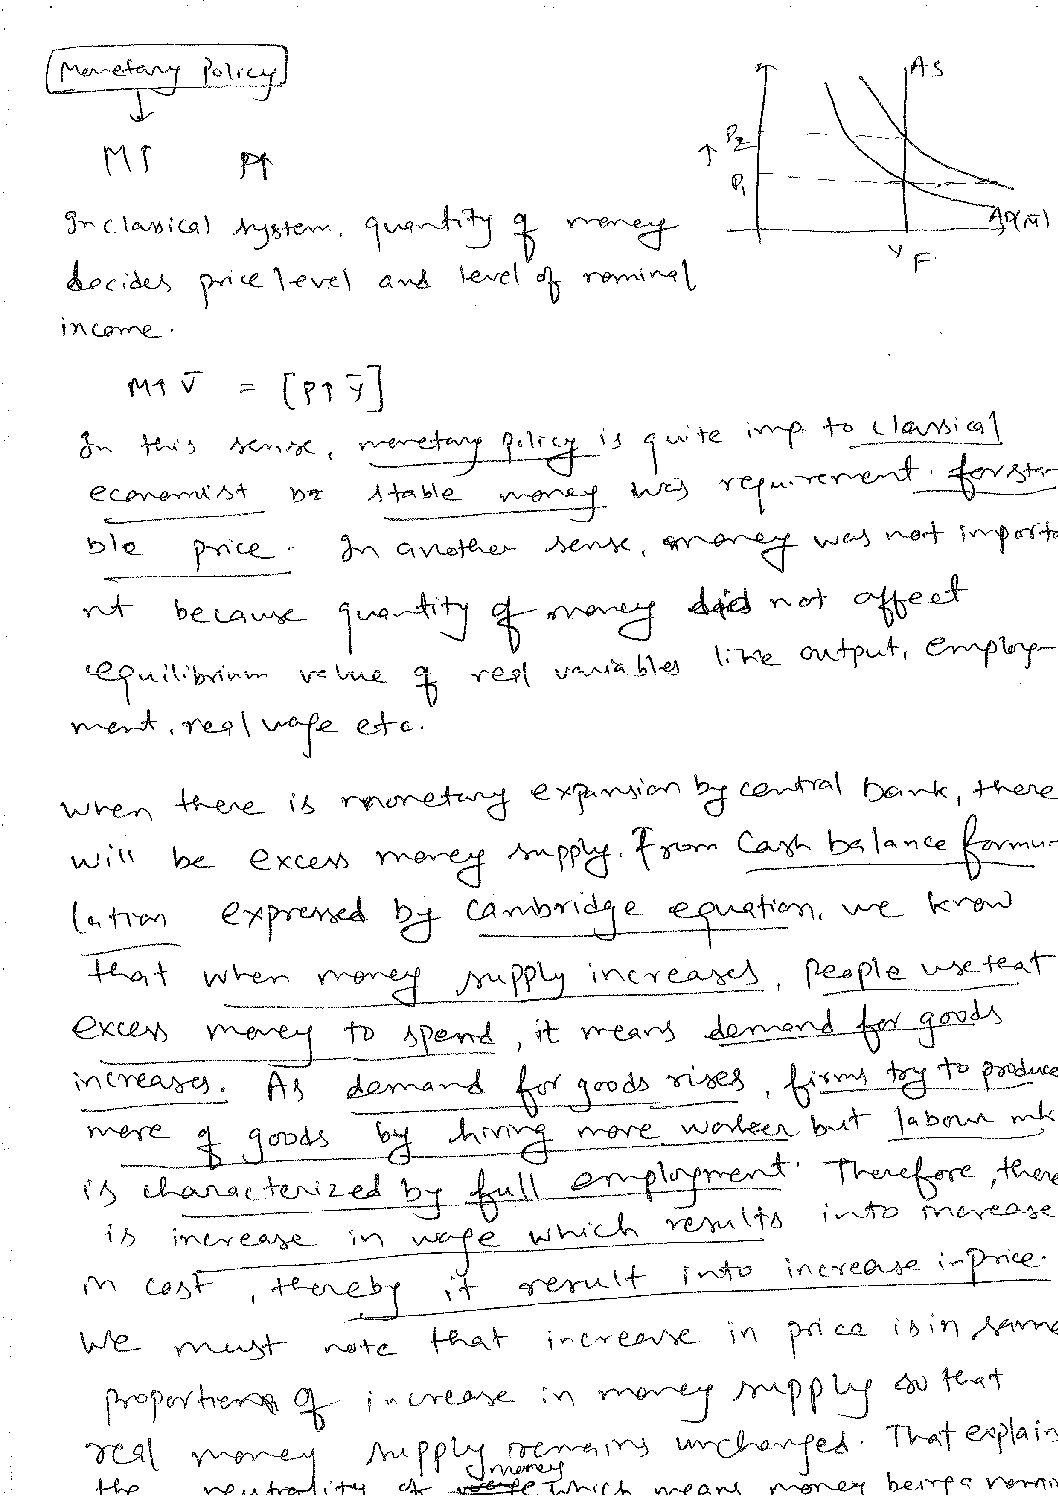 Monetary Policy
M↑ P↑
AS
↑ P2
P1
AD(M̄)
YF
In classical system, quantity of money
decides price level and level of nominal
income.
M↑ V̄ = [P↑ Ȳ]
In this sense, monetary policy is quite imp to classical
economist bz stable money was requirement for sta-
ble price. In another sense, money was not importa
nt because quantity of money did not affect
equilibrium value of real variables like output, employ-
ment, real wage etc.
When there is monetary expansion by central bank, there
will be excess money supply. From Cash balance formu-
lation expressed by Cambridge equation, we know
that when money supply increases, people use that
excess money to spend, it means demand for goods
increases. As demand for goods rises, firms try to produce
more of goods by hiring more worker but labour mk
is characterized by full employment. Therefore, there
is increase in wage which results into increase
in cost, thereby it result into increase in price.
We must note that increase in price is in same
proportion of increase in money supply so that
real money supply remains unchanged. That explain
the neutrality of money which means money being a nomi